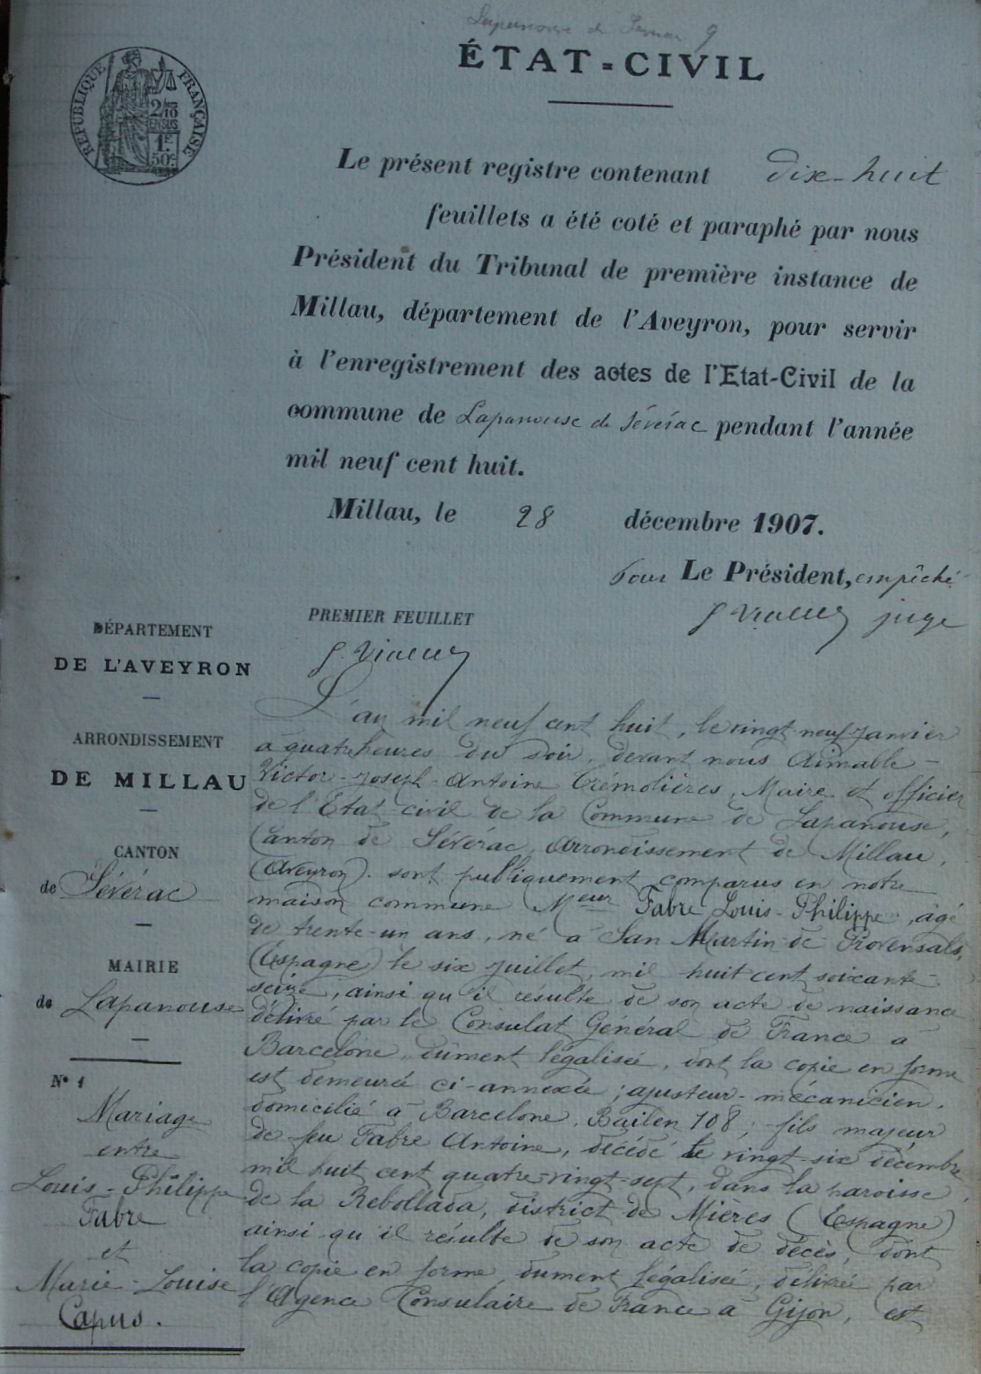 Lapanouse de Séverac 9
ÉTAT-CIVIL
RÉPUBLIQUE FRANÇAISE
2/10 EN SUS
1F 50c
Le présent registre contenant dix-huit
feuillets a été coté et paraphé par nous
Président du Tribunal de première instance de
Millau, département de l'Aveyron, pour servir
à l'enregistrement des actes de l'Etat-Civil de la
commune de Lapanouse de Séverac pendant l'année
mil neuf cent huit.
Millau, le 28 décembre 1907.
Pour Le Président, empêché
juge
PREMIER FEUILLET
DÉPARTEMENT
DE L'AVEYRON
ARRONDISSEMENT
DE MILLAU
CANTON
de Sévérac
MAIRIE
de Lapanouse
N° 1
Mariage
entre
Louis-Philippe
Fabre
et
Marie-Louise
Capus.
L'an mil neuf cent huit, le vingt-neuf janvier
à quatre heures du soir, devant nous Aimable-
Victor-Joseph-Antoine Trémolières, Maire et officier
de l'Etat-civil de la Commune de Lapanouse,
Canton de Sévérac, Arrondissement de Millau,
(Aveyron). sont publiquement comparus en notre
maison commune Meur Fabre Louis-Philippe, âgé
de trente-un ans, né à San Martin de Provensals,
(Espagne) le six juillet, mil huit cent soixante-
seize, ainsi qu'il résulte de son acte de naissance
délivré par le Consulat Général de France à
Barcelone, dûment légalisée, dont la copie en forme
est demeurée ci-annexée ; ajusteur-mécanicien,
domicilié à Barcelone, Bailen 108 ; fils majeur
de feu Fabre Antoine, décédé le vingt-six décembre
mil huit cent quatre-vingt-sept, dans la paroisse
de la Rebollada, district de Mieres (Espagne)
ainsi qu'il résulte de son acte de décès, dont
la copie en forme, dument légalisée, délivrée par
l'Agence Consulaire de France à Gijon, est